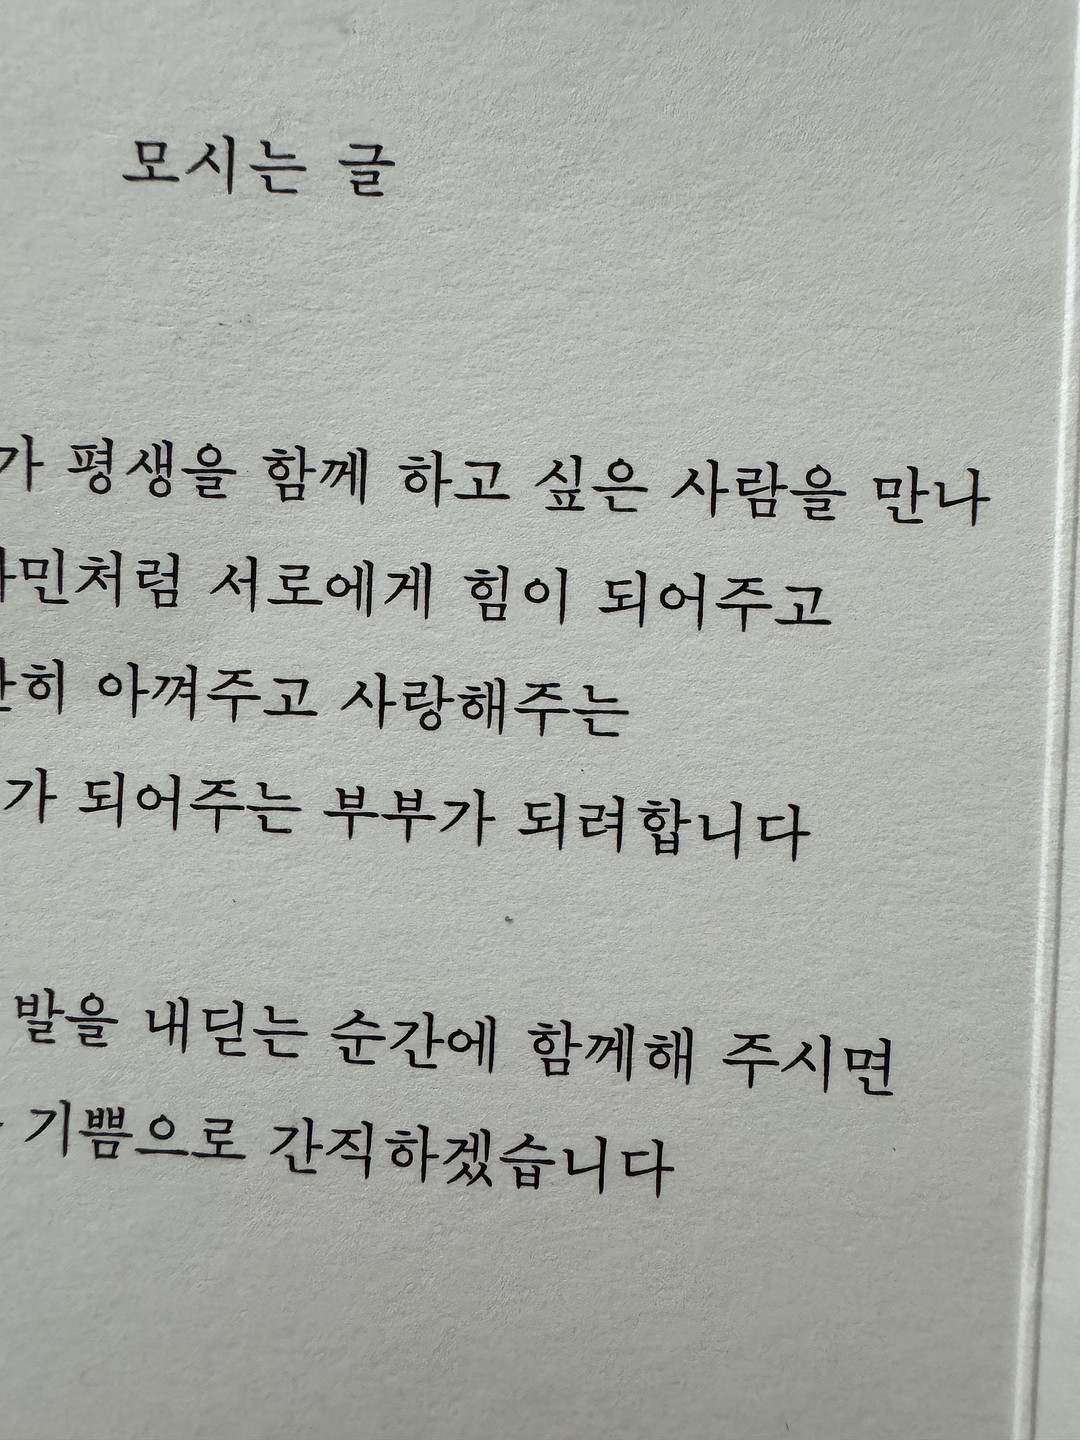 모시는 글
가 평생을 함께 하고 싶은 사람을 만나
서로에게 힘이 되어주고
아껴주고 사랑해주는
가 되어주는 부부가 되려합니다
발을 내딛는 순간에 함께해 주시면
기쁨으로 간직하겠습니다